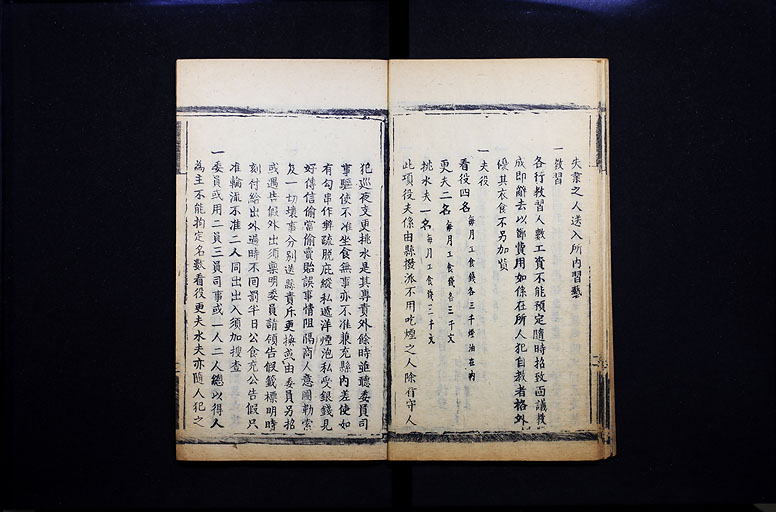 失業之人送入所內習藝
一教習
各行教習人數工資不能預定隨時招致面議教
成即辭去以節費用如係在所人犯自教者格外
優其衣食不另加資
一夫役
看役四名每月工食錢各三千煙油在內
更夫二名每月工食錢各三千文
挑水夫一名每月工食錢三千文
此項役夫係由縣撥派不用吃煙之人除看守人
犯巡夜支更挑水是其專責外餘時並聽委員司
事驅使不准坐食無事亦不准兼充縣內差使如
有勾串作弊疏脫庇縱私遞洋煙泡私受銀錢見
好傳信偷當偷賣貽誤事情阻隔商人意圖勒索
及一切壞事分別送縣責斥更換或由委員另招
或遇告假外出須稟明委員請領告假籤標明時
刻付給出外過時不回罰半日公食充公告假只
准輪流不准二人同出出入須加搜查
一委員或用二員三員司事或一人二人總以得人
為主不能拘定名數看役更夫水夫亦隨人犯之